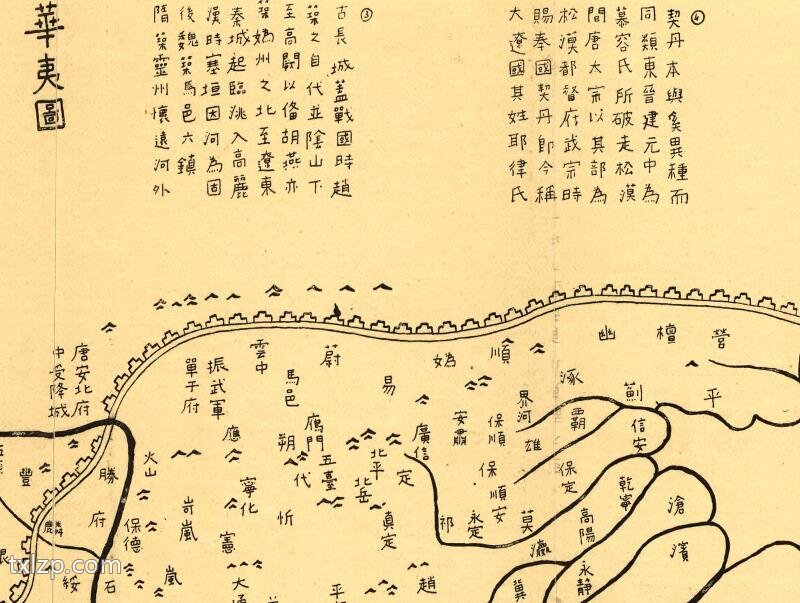 華夷圖
④
契丹本與奚異種而
同類東晉建元中為
慕容氏所破走松漠
間唐太宗以其部為
松漠都督府武宗時
賜奉國契丹即今稱
大遼國其姓耶律氏
③
古長城蓋戰國時趙
築之自代並陰山下
至高闕以偹胡燕亦
築媯州之北至遼東
秦城起臨洮入高麗
漢時塞垣因河為固
後魏築馬邑六鎮
隋築靈州懷遠河外
營
檀
幽
順
媯
蔚
雲中
振武軍
單于府
唐安北府
中受降城
平
薊
涿
界河
易
馬邑
霸
信安
雄
保順
安肅
廣信
鴈門
應
朔
北平
定
五臺
代
北岳
火山
豐
勝
府
麟
乾寧
保定
保順安
滄
高陽
莫
永定
祁
真定
忻
寧化
岢嵐
保德
憲
濱
瀛
永靜
冀
趙
嵐
石
綏
txlzp.com